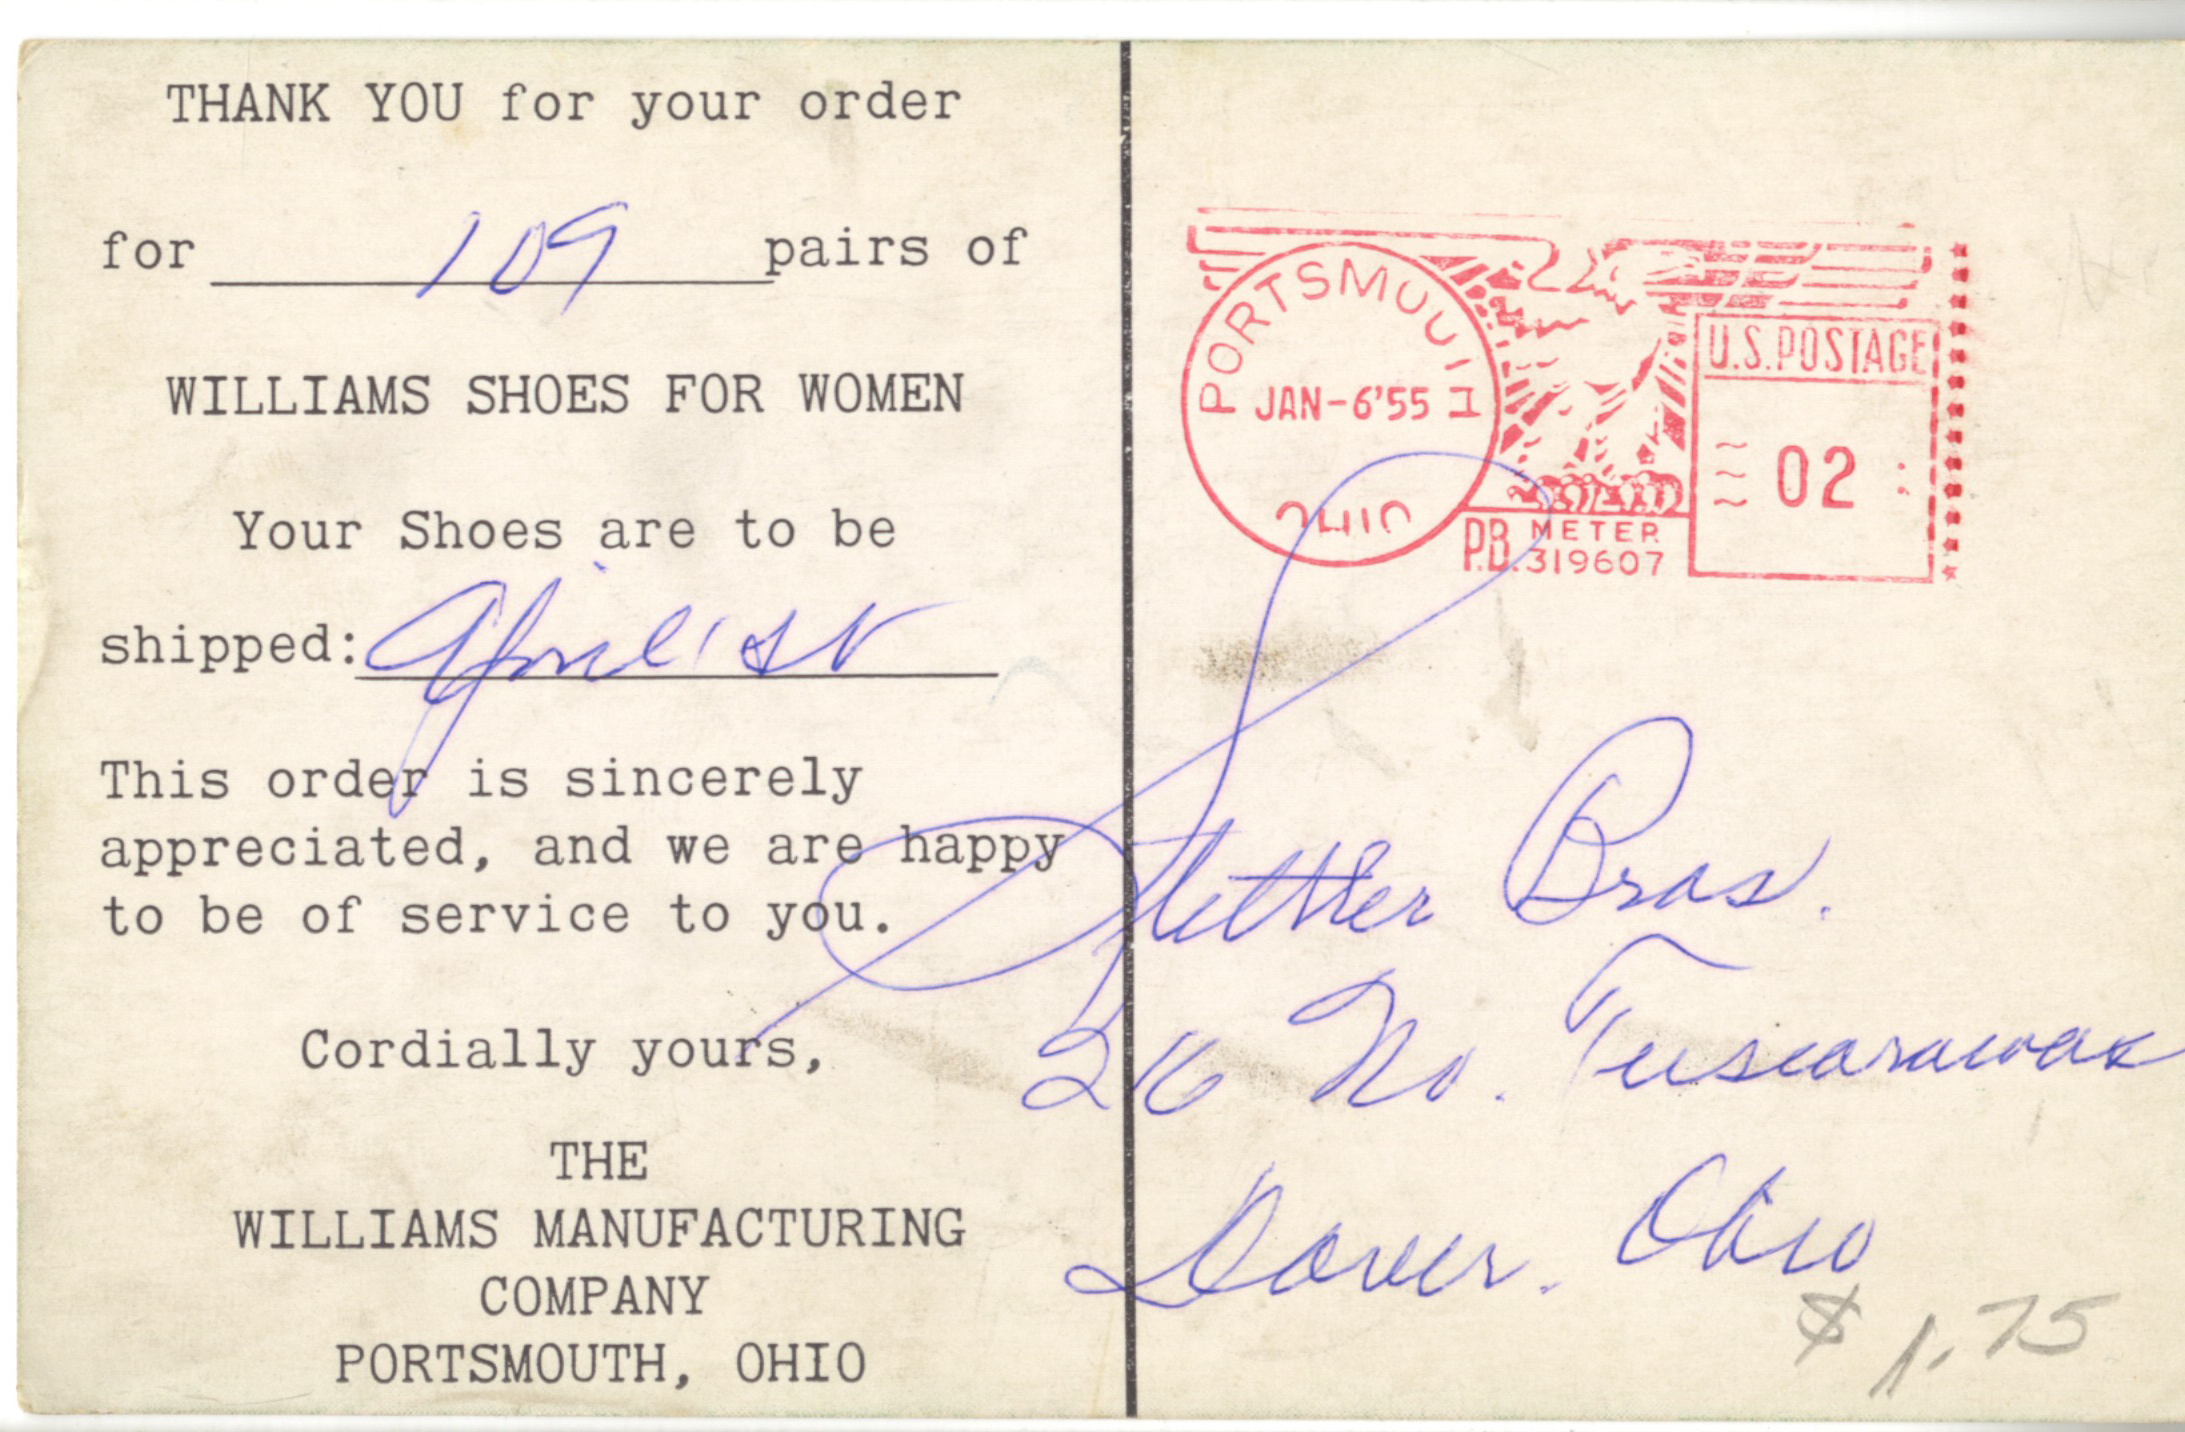 THANK YOU for your order
for 109 pairs of
WILLIAMS SHOES FOR WOMEN
Your Shoes are to be
shipped: April 1st
This order is sincerely
appreciated, and we are happy
to be of service to you.
Cordially yours,
THE
WILLIAMS MANUFACTURING
COMPANY
PORTSMOUTH, OHIO
PORTSMOUTH
JAN-6'55
OHIO
U.S.POSTAGE
02
P.B. METER
319607
Bros.
No. Tuscarawas
Dover. Ohio
$1.75